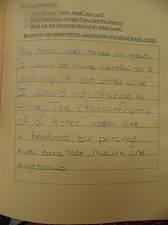 "Aztec mask" turn out?
What would you change if you had the chance?
What are the characteristics of an Aztec mask?
Be sure to use capital letters, punctuation and lots of details. RACE.
My Aztec mask turned out great.
I would be more careful so I
dont rip it out other wise
I would not change a
thing. The Characteristics
of a Aztec mask are
a headress, Ear percings,
eyes, ears, nose, mouth and
eyebrows